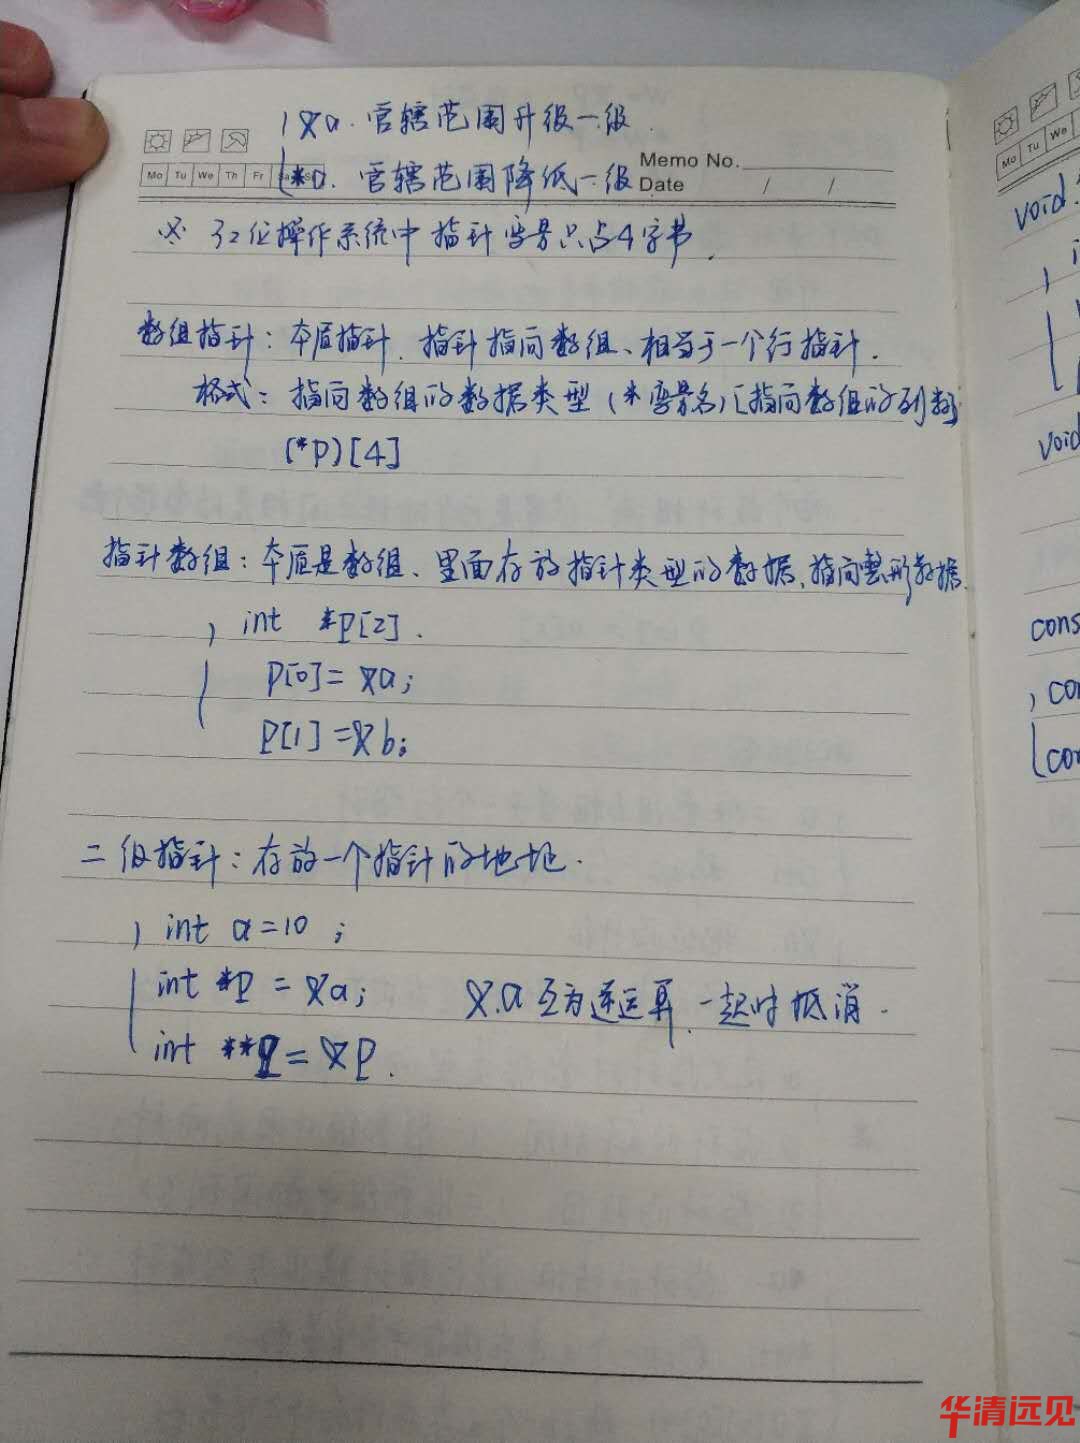 &a. 官辖范围升级一级.
*a. 官辖范围降低一级
Memo No.
Mo Tu We Th Fr Sa Su
Date / /
※ 32位操作系统中指针变量只占4字节.
数组指针: 本质指针. 指针指向数组、相当于一个行指针.
格式: 指向数组的数据类型 (*变量名) [指向数组的列数]
(*P)[4]
指针数组: 本质是数组、里面存放指针类型的数据, 指向整形数据.
int *P[2].
P[0] = &a;
P[1] = &b;
二级指针: 存放一个指针的地址.
int a=10 ;
int *P = &a;
&.a 互为逆运算, 一起时抵消.
int **q = &P.
void
void
cons
con
con
Mo Tu We
华清远见